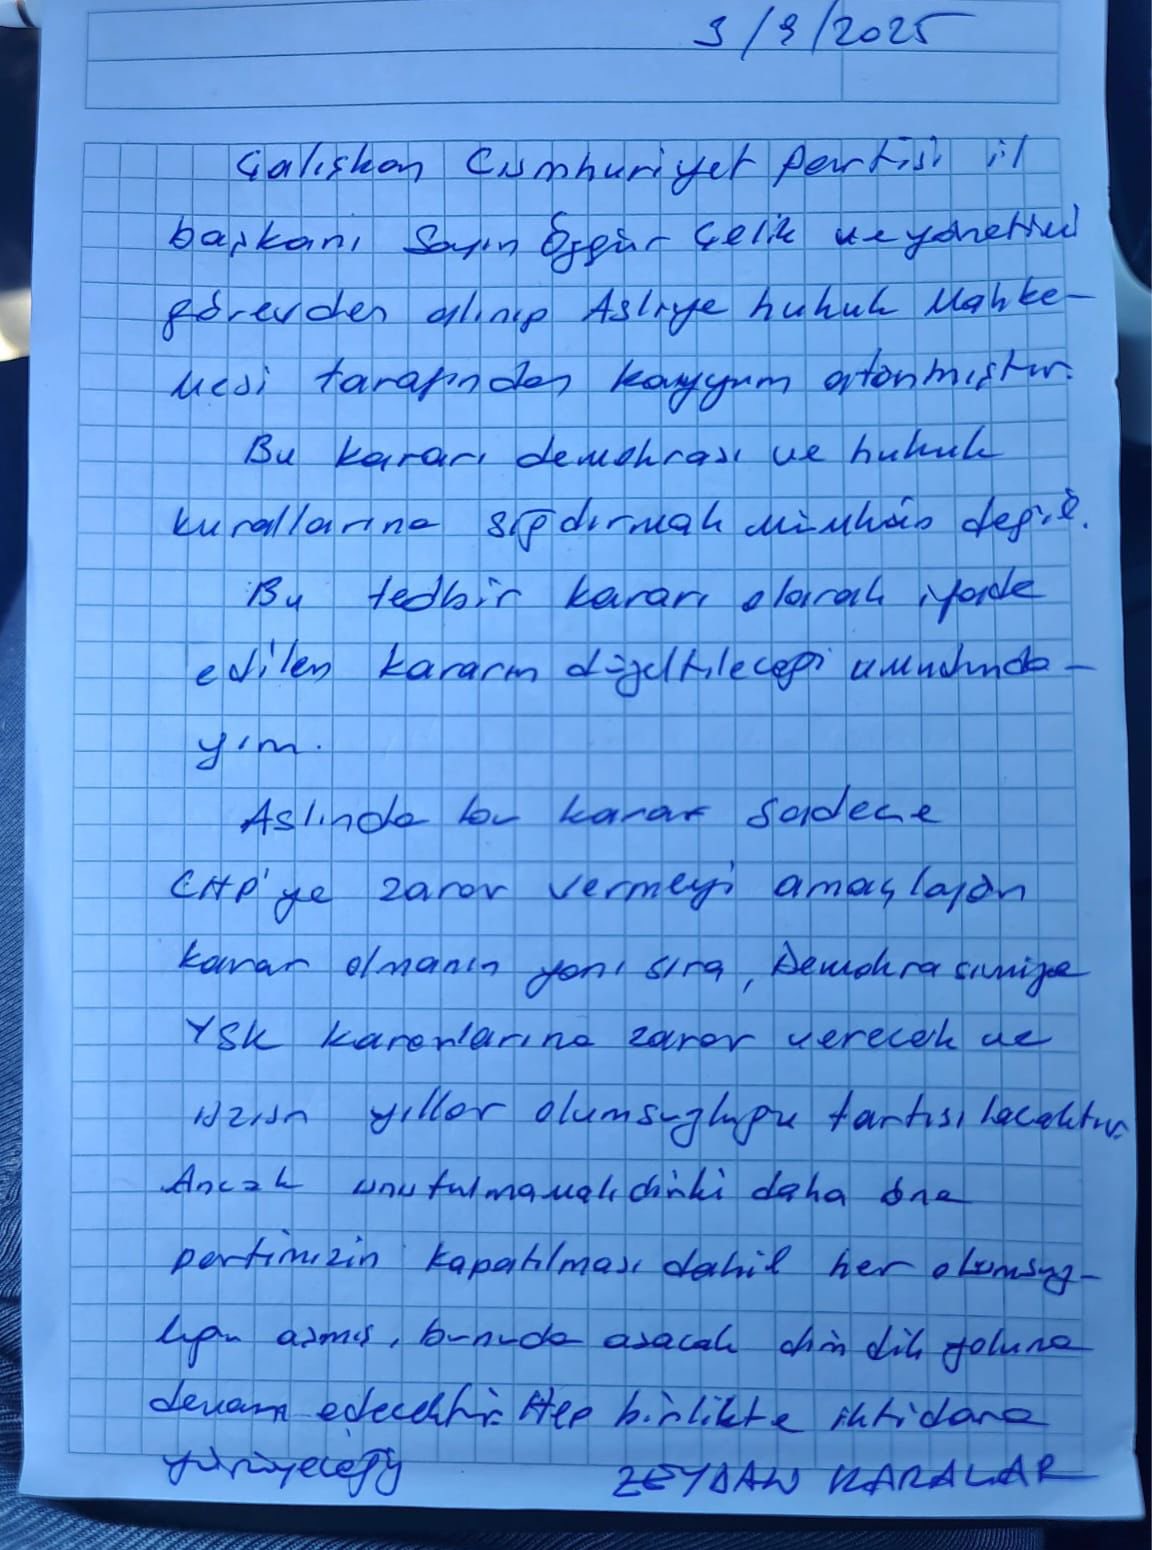 3/9/2025
Çalışkan Cumhuriyet Partisi il
başkanı Sayın Özgür Çelik ve yönetimi
görevden alınıp Asliye hukuk Mahke-
mesi tarafından kayyum atanmıştır.
Bu kararı demokrasi ve hukuk
kurallarına sığdırmak mümkün değil.
Bu tedbir kararı olarak ifade
edilen kararın düzeltileceği umudunda-
yım.
Aslında bu karar sadece
CHP'ye zarar vermeyi amaçlayan
karar olmanın yanı sıra, Demokrasimize
YSK kararlarına zarar verecek ve
uzun yıllar olumsuzluğu tartışılacaktır.
Ancak unutulmamalıdırki daha önce
partimizin kapatılması dahil her olumsuz-
luğu aşmış, bunuda aşacak dim dik yoluna
devam edecektir. Hep birlikte iktidara
yürüyeceğiz ZEYDAN KARALAR